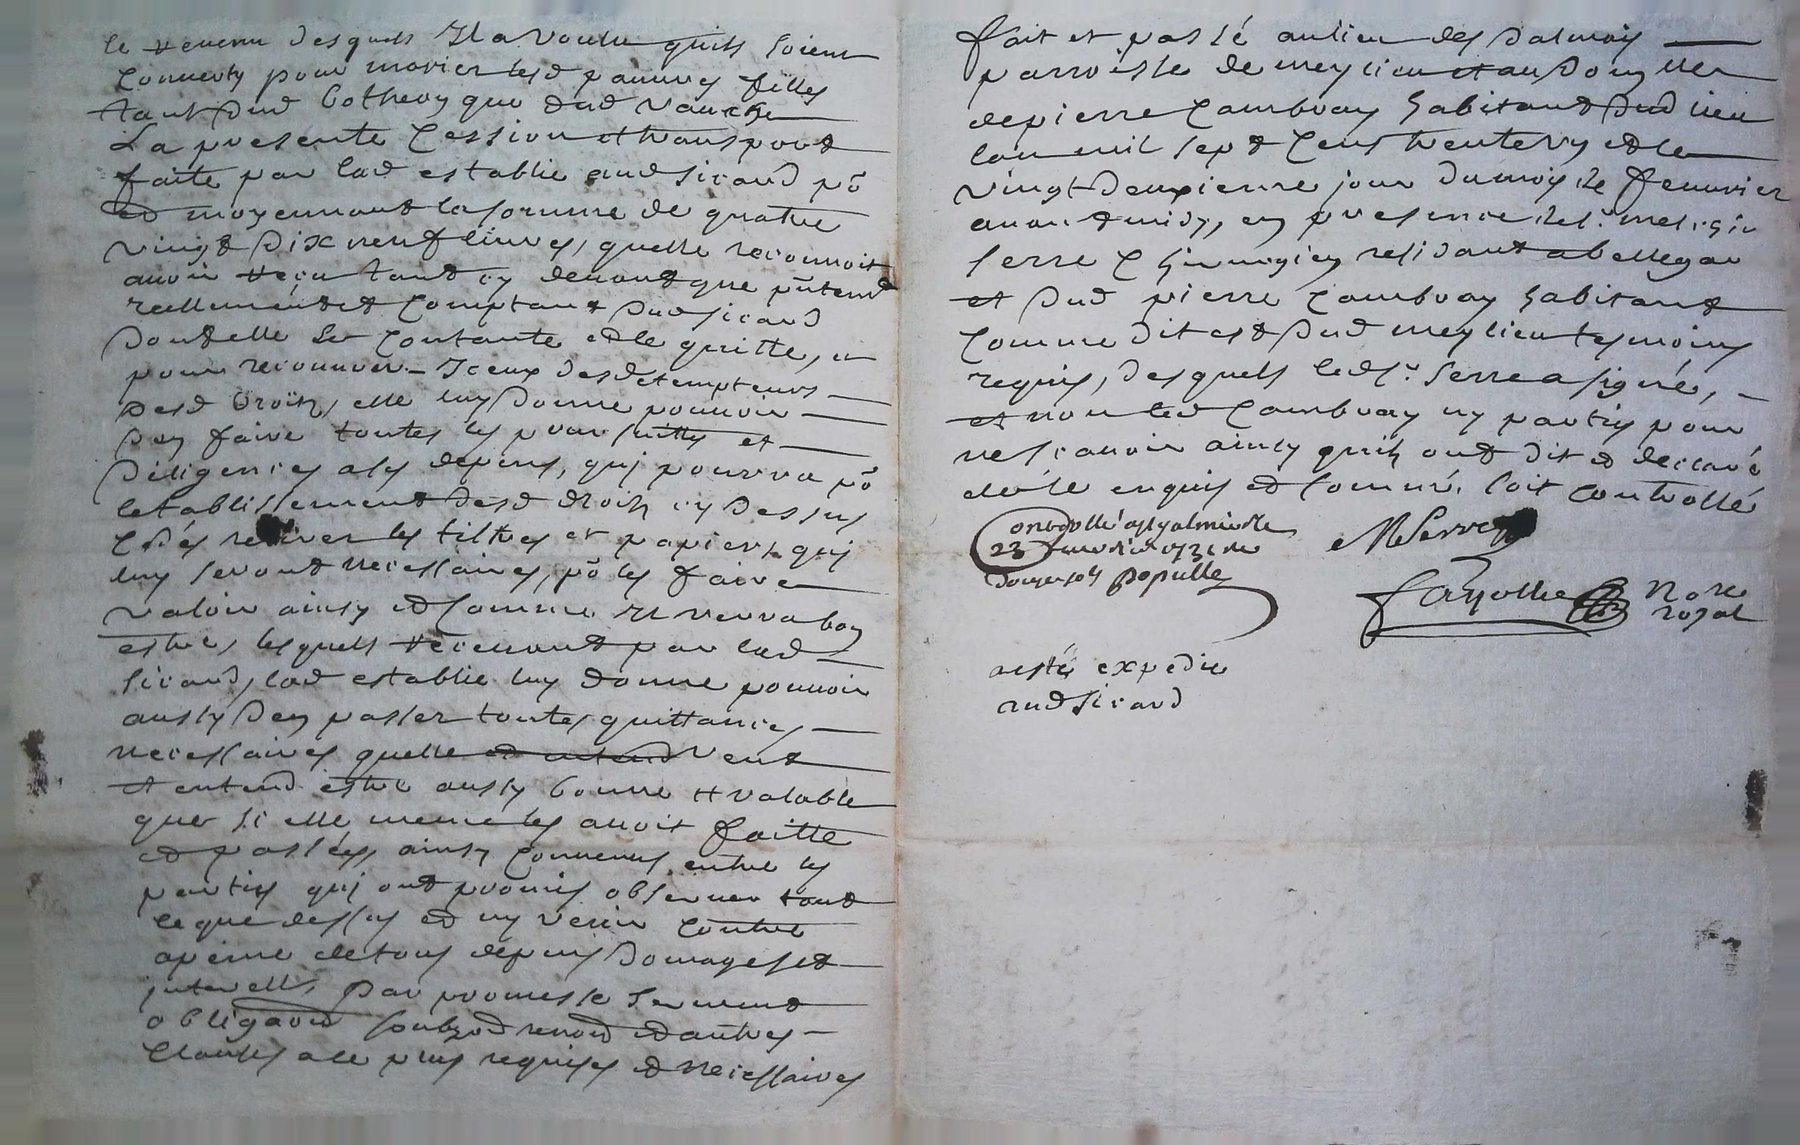 le revenu desquels Il a voulu quils soient
converty pour marier lesd pauvres filles
tant dud Botheon que dud Vauche
La presente Cession et transport
faitte par lad establie aud sicard po
et moyennant la somme de quatre
vingt dix neuf livres, quelle reconnoit
avoir reçu tant cy devant que pntem
reellement et comptant dud sicard
dont elle se contante et le quitte, et
pour recouvrer Iceux des detempteurs
desd droits, elle luy donne pouvoir
den faire toutes les poursuittes et
diligences a ses depens, quj pourra po
letablissement desd droits cy dessus
cedés retirer les tiltres et papiers quj
luy seront necessaires, po les faire
valoir ainsy et comme il verra bon
estre, lesquels recevant par led
sicard, lad establie luy donne pouvoir
aussy den passer toutes quittances
necessaires quelle et entend veut
et entend estre aussy bonne et valable
que si elle meme les avoit faitte
et passées, ainsy convenus entre les
parties quj ont promis observer tout
ce que dessus et ny venir contre
apeine de tous depens domages et
jnterests, par promesse serment
obligaon soubzon renoon et autres
clauses a ce plus requises et necessaires
fait et passé au lieu des dalmais
parroisse de meylieu et au domaine
de pierre Cambray habitant dud lieu
lan mil sept cens trente un et le
vingt deuxieme jour du mois de feuvrier
avant midy, en presence de sr melchir
serre Chirurgien residant a bellegar
et dud pierre Cambray habitant
comme dit est dud meylieu tesmoins
requis, desquels led sr serre a signé,
et non led Cambray ny parties pour
ne scavoir ainsy quils ont dit et declaré
de ce enquis et sommé. soit controllé
controllé a st galmier le
23 feuvrier 1731 Re
douze sols populle
MSerre
Fayolle Nore
royal
aesté expedie
aud sicard